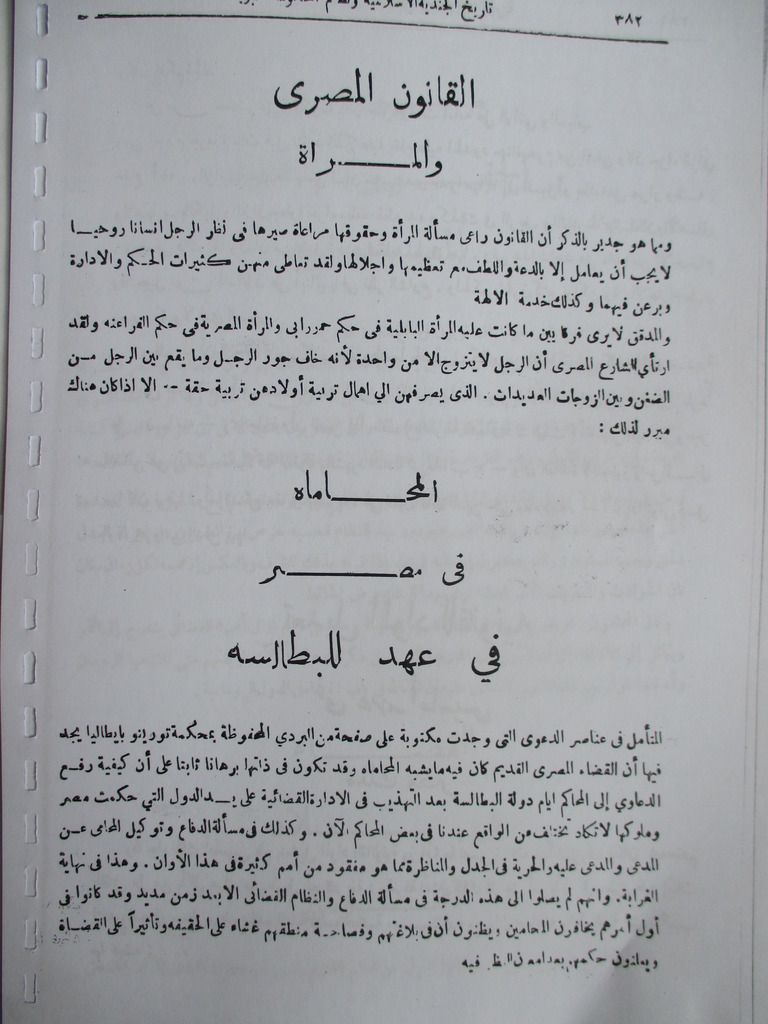 ٣٨٢
تاريخ الجندية الاسلامية ونظام
القانون المصرى
والمـــــراة
ومما هو جدير بالذكر أن القانون راعى مسألة المرأة وحقوقها مراعاة صيرها فى نظر الرجل انسانا روحيـــا
لايجب أن يعامل إلا بالدعة واللطف مع تعظيمها واجلالها ولقد تعاطى منهن كثيرات الحكم والادارة
وبرعن فيهما وكذلك خدمة الالهة
والمدقق لايرى فرقا بين ما كانت عليه المرأة البابلية فى حكم حمورابى والمرأة المصرية فى حكم الفراعنه ولقد
ارتأى الشارع المصرى أن الرجل لايتزوج الا من واحدة لأنه خاف جور الرجل وما يقع بين الرجل مـــن
الضغن وبين الزوجات العديدات . الذى يصرفهن الي اهمال تربية أولادهن تربية حقة -- الا اذا كان هناك
مبرر لذلك :
المحـــــاماه
فى مصـــــر
في عهد للبطالسه
المتأمل فى عناصر الدعوى التى وجدت مكتوبة على صفحة من البردي المحفوظة بمحكمة تورينو بايطاليا يجد
فيها أن القضاء المصرى القديم كان فيه مايشبه المحاماه وقد تكون فى ذاتها برهانا ثابتا على أن كيفية رفـــع
الدعاوي إلى المحاكم ايام دولة البطالسة بعد التهذيب فى الادارة القضائية على يـــد الدول التي حكمت مصر
وملوكها لاتكاد تختلف عن الواقع عندنا فى بعض المحاكم الآن . وكذلك فى مسألة الدفاع وتوكيل المحامى عـــن
المدعى والمدعى عليه والحرية فى الجدل والمناظرة مما هو مفقود من أمم كثيرة فى هذا الأوان . وهذا فى نهاية
الغرابة. وانهم لم يصلوا الى هذه الدرجة فى مسألة الدفاع والنظام القضائى الا بعد زمن مديد وقد كانوا فى
أول أمرهم يخافون المحامين ويظنون أن فى بلاغتهم وفصاحـة منطقهم غشاء على الحقيقه وتأثيراً على القضـاة
ويعلنون حكمهم بعد امعان النظر فيه